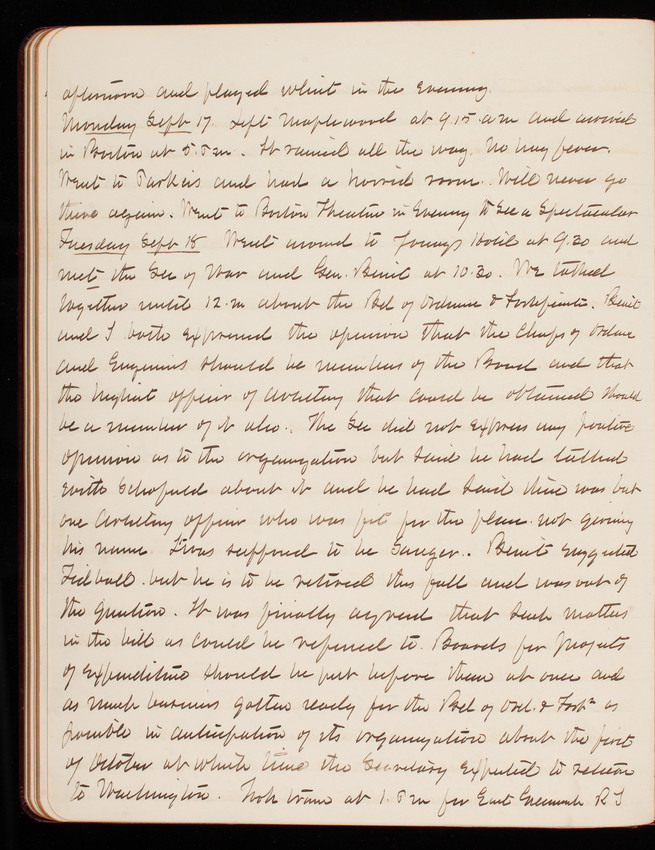 afternoon and played whist in the evening.
Monday Sept 17. Left Maplewood at 9.15 a.m and arrived
in Boston at 5. P.m. It rained all the way. No hay fever.
Went to Parkers and had a horrid room. Will never go
there again. Went to Boston Theatre in Evening to see a Spectacular
Tuesday Sept 18 Went around to Youngs Hotel at 9.30 and
met the Sec of War and Gen. Benét at 10.30. We talked
together until 12. m about the Bd of Ordnance & Fortification. Benét
and I both expressed the opinion that the Chiefs of Ordnance
and Engineers should be members of the Board and that
the highest officer of Artillery that could be obtained should
be a member of it also. The Sec did not express any positive
opinion as to the organization but said he had talked
with Schofield about it and he had said there was but
one Artillery officer who was fit for the place. not giving
his name. I was supposed to be Sanger. Benét suggested
Tidball. but he is to be retired this fall and was out of
the question. It was finally agreed that such matters
in the bill as could be referred to Boards for projects
of expenditure should be put before them at once and
as much business gotten ready for the Bd of Ord. & Fortn as
possible in anticipation of its organization about the first
of October at which time the Secretary expected to return
to Washington. Took train at 1. P.m for East Greenwich R I